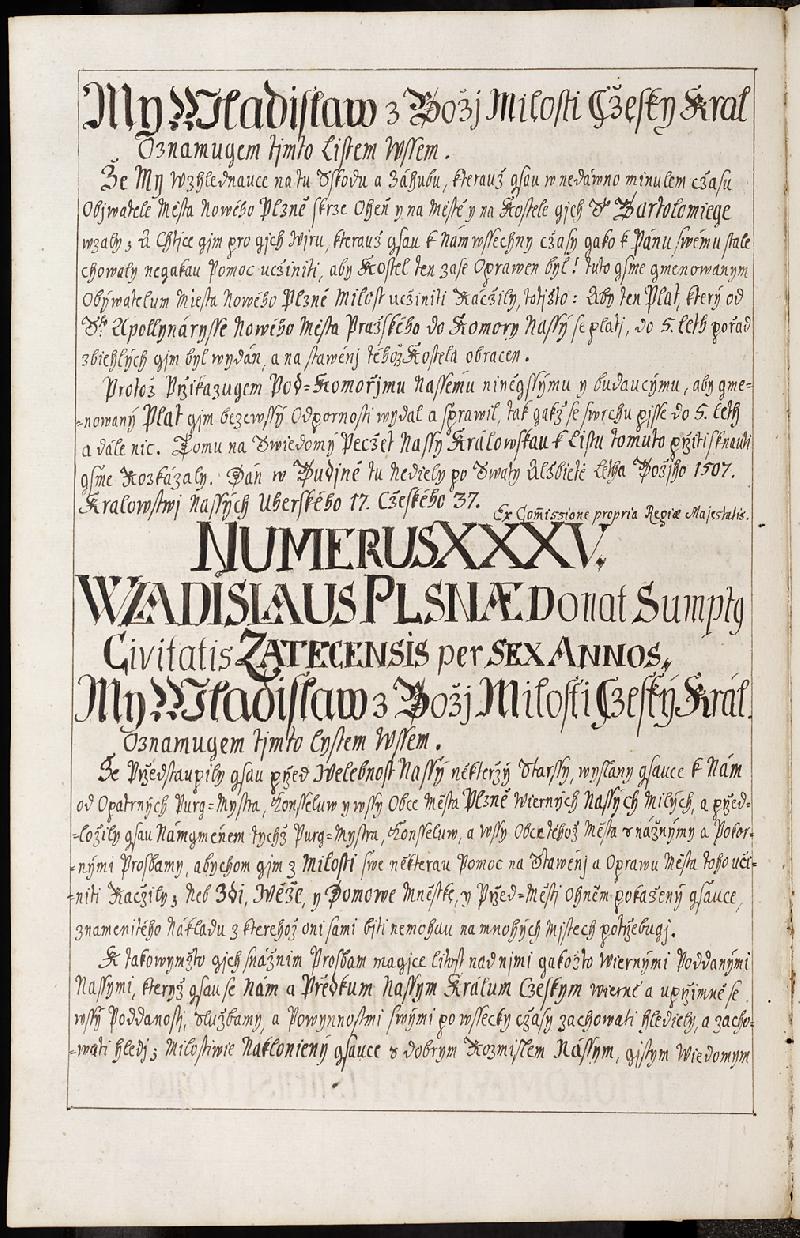 My Wladislaw z Božj Milosti Cžesky Kral
Oznamugem tjmto Listem Wssem.
Že My wzhlednauce na tu Sskodu a Záhubu, kterauž gsau w nedáwno minulem cžasu
Obywatelé Města Nowého Plzně skrze Oheň y na Městě y na Kostele gjch Sº Bartolomiege
wzaly; A Chtjce gjm pro gjch Wjru, kterauž gsau k Nám wssechny cžasy gako k Pánu swému stale
chowaly negakau Pomoc ucžiniti, aby Kostel ten zase Oprawen byl! tuto gsme gmenowanym
Obywatelum Miesta Nowého Plzně Milost ucžiniti Racžily, totjžto: Aby ten Plat, který od
Sº Apollynárysse Nowého Města Pražského do Komory Nassý se platj, do 5. leth pořad
zbiehlých gjm byl wydán, a na stawěnj téhož Kostela obracen.
Protož Pržikazugem Pod=Komořjmu Nassému ninégssýmu y budaucýmu, aby gme=
=nowaný Plat gjm bezewssý Odpornosti wydal a sprawil, tak gakž se swrchu pjsse do 5. leth
a dále nic. Tomu na Swiedomý Pecžet Nassý Králowskau k Listu tomuto pržitisknauti
gsme Rozkázaly. Dán w Budjně tu Nediely po Swaty Alžbietě Létha Božjho 1507.
Kralowstwj Nassých Uherského 17. Cžeského 37.
Ex Com̃issione propria Regiæ Majestatis.
NUMERUS XXXV.
WLADISLAUS PLSNÆ Donat Sumptq
Civitatis ZATECENSIS per SEX ANNOS,,
My Wladislaw z Božj Milosti Cžeský Král.
Oznamugem tjmto lystem Wssem.
Že Pržedstaupily gsau pržed Welebnost Nassý některžý Starssý, wyslany gsauce k Nám
od Opatrných Purg=Mystra, Konsseluw y wssý Obce Města Plzně Wierných Nassých Milých, a pržed=
=ložily gsau Nám gmeňem tychž Purg=Mystra, Konsseluw, a wssý Obce téhož Města snážnýmy a Pokor=
=nými Prosbamy, abychom gjm z Milosti swe některau Pomoc na Stawěnj a Oprawu Města toho ucži=
=niti Racžily; Neb Zdi, Wěže, y Domowe Mněstke, y Pržed=Městj Ohněm pokažený gsauce,
znamenitého Nákladu z kterehož oni sami býti nemohau na mnohých Mjstech potržebugj.
K takowymžto gjch snážnim Prosbam magjce litost nad njmi gakožto Wiernými Poddanými
Nassými, kteryž gsau se Nám a Předkum Nassým Králum Cžeskym wierně a upržimně se
wssý Poddanostj, Službamy, a Powynnostmi swými po wssecky cžasy zachowati hlediely, a zacho=
=wati hledj; Milostiwie Nakloniený gsauce s dobrým Rozmislem Nássym, gistym Wiedomym